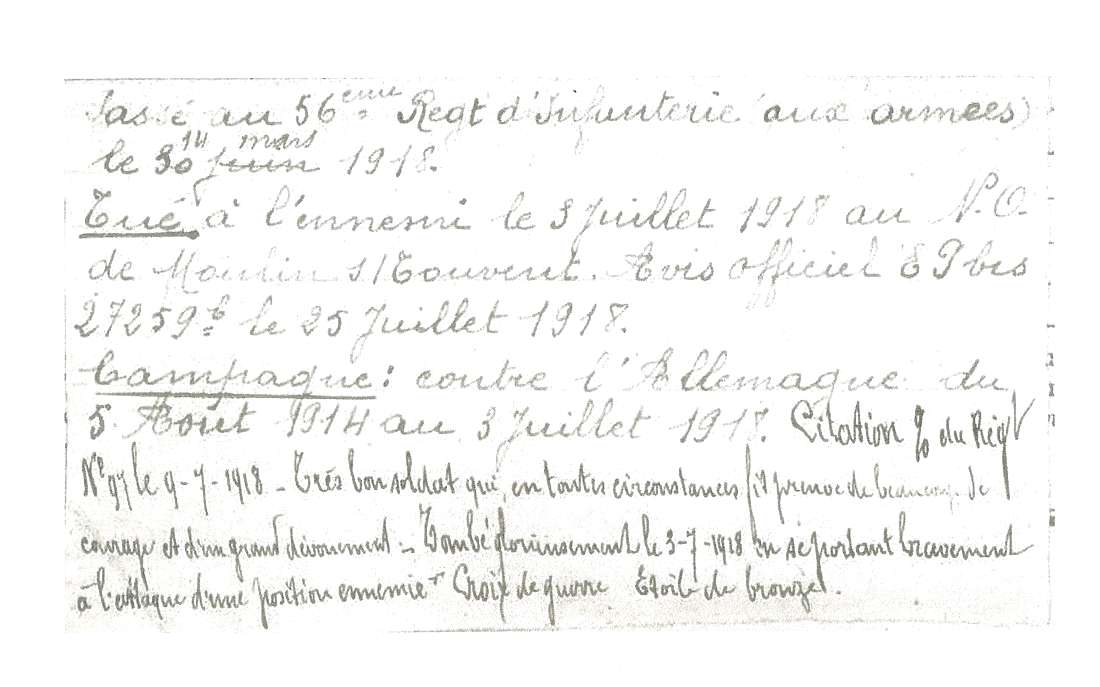 Passé au 56ème Regt d'Infanterie (aux armees)
14 mars
le 30 juin 1918.
Tué à l'ennemi le 3 Juillet 1918 au N.O.
de Moulin s/Touvent. Avis officiel EP bis
27259 le 25 Juillet 1918.
Campagne: contre l'Allemagne du
5 Août 1914 au 3 Juillet 1918. Citation % du Régt
N° 97 le 9-7-1918 - Très bon soldat qui en toutes circonstances fit preuve de beaucoup de
courage et d'un grand dévouement - Tombé glorieusement le 3-7-1918 en se portant bravement
à l'attaque d'une position ennemie - Croix de guerre Etoile de bronze.